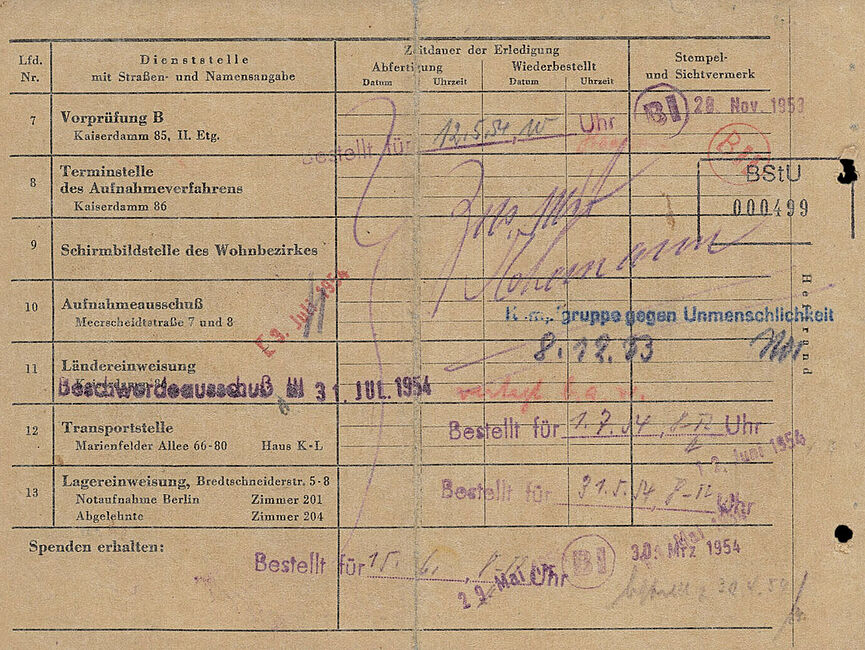 Zeitdauer der Erledigung
Lfd. Nr. Dienststelle mit Straßen- und Namensangabe Abfertigung Wiederbestellt Stempel- und Sichtvermerk
Datum Uhrzeit Datum Uhrzeit
7 Vorprüfung B
Kaiserdamm 85, II. Etg.
Bestellt für 12.5.54, Uhr
BI 28. Nov. 1953
8 Terminstelle
des Aufnahmeverfahrens
Kaiserdamm 86
BStU
000499
9 Schirmbildstelle des Wohnbezirkes
10 Aufnahmeausschuß
Meerscheidtstraße 7 und 8
Juli 1954
Kampfgruppe gegen Unmenschlichkeit
8.12.53
Heftrand
11 Ländereinweisung
Beschwerdeausschuß III 31. JUL. 1954
12 Transportstelle
Marienfelder Allee 66-80 Haus K-L
Bestellt für 1.7.54, 8-12 Uhr
12. Juni 1954
13 Lagereinweisung, Bredtschneiderstr. 5-8
Notaufnahme Berlin Zimmer 201
Abgelehnte Zimmer 204
Bestellt für 31.5.54, 8-12 Uhr
Spenden erhalten:
Bestellt für 15. 6., Uhr
BI 30. Mrz 1954
Mai